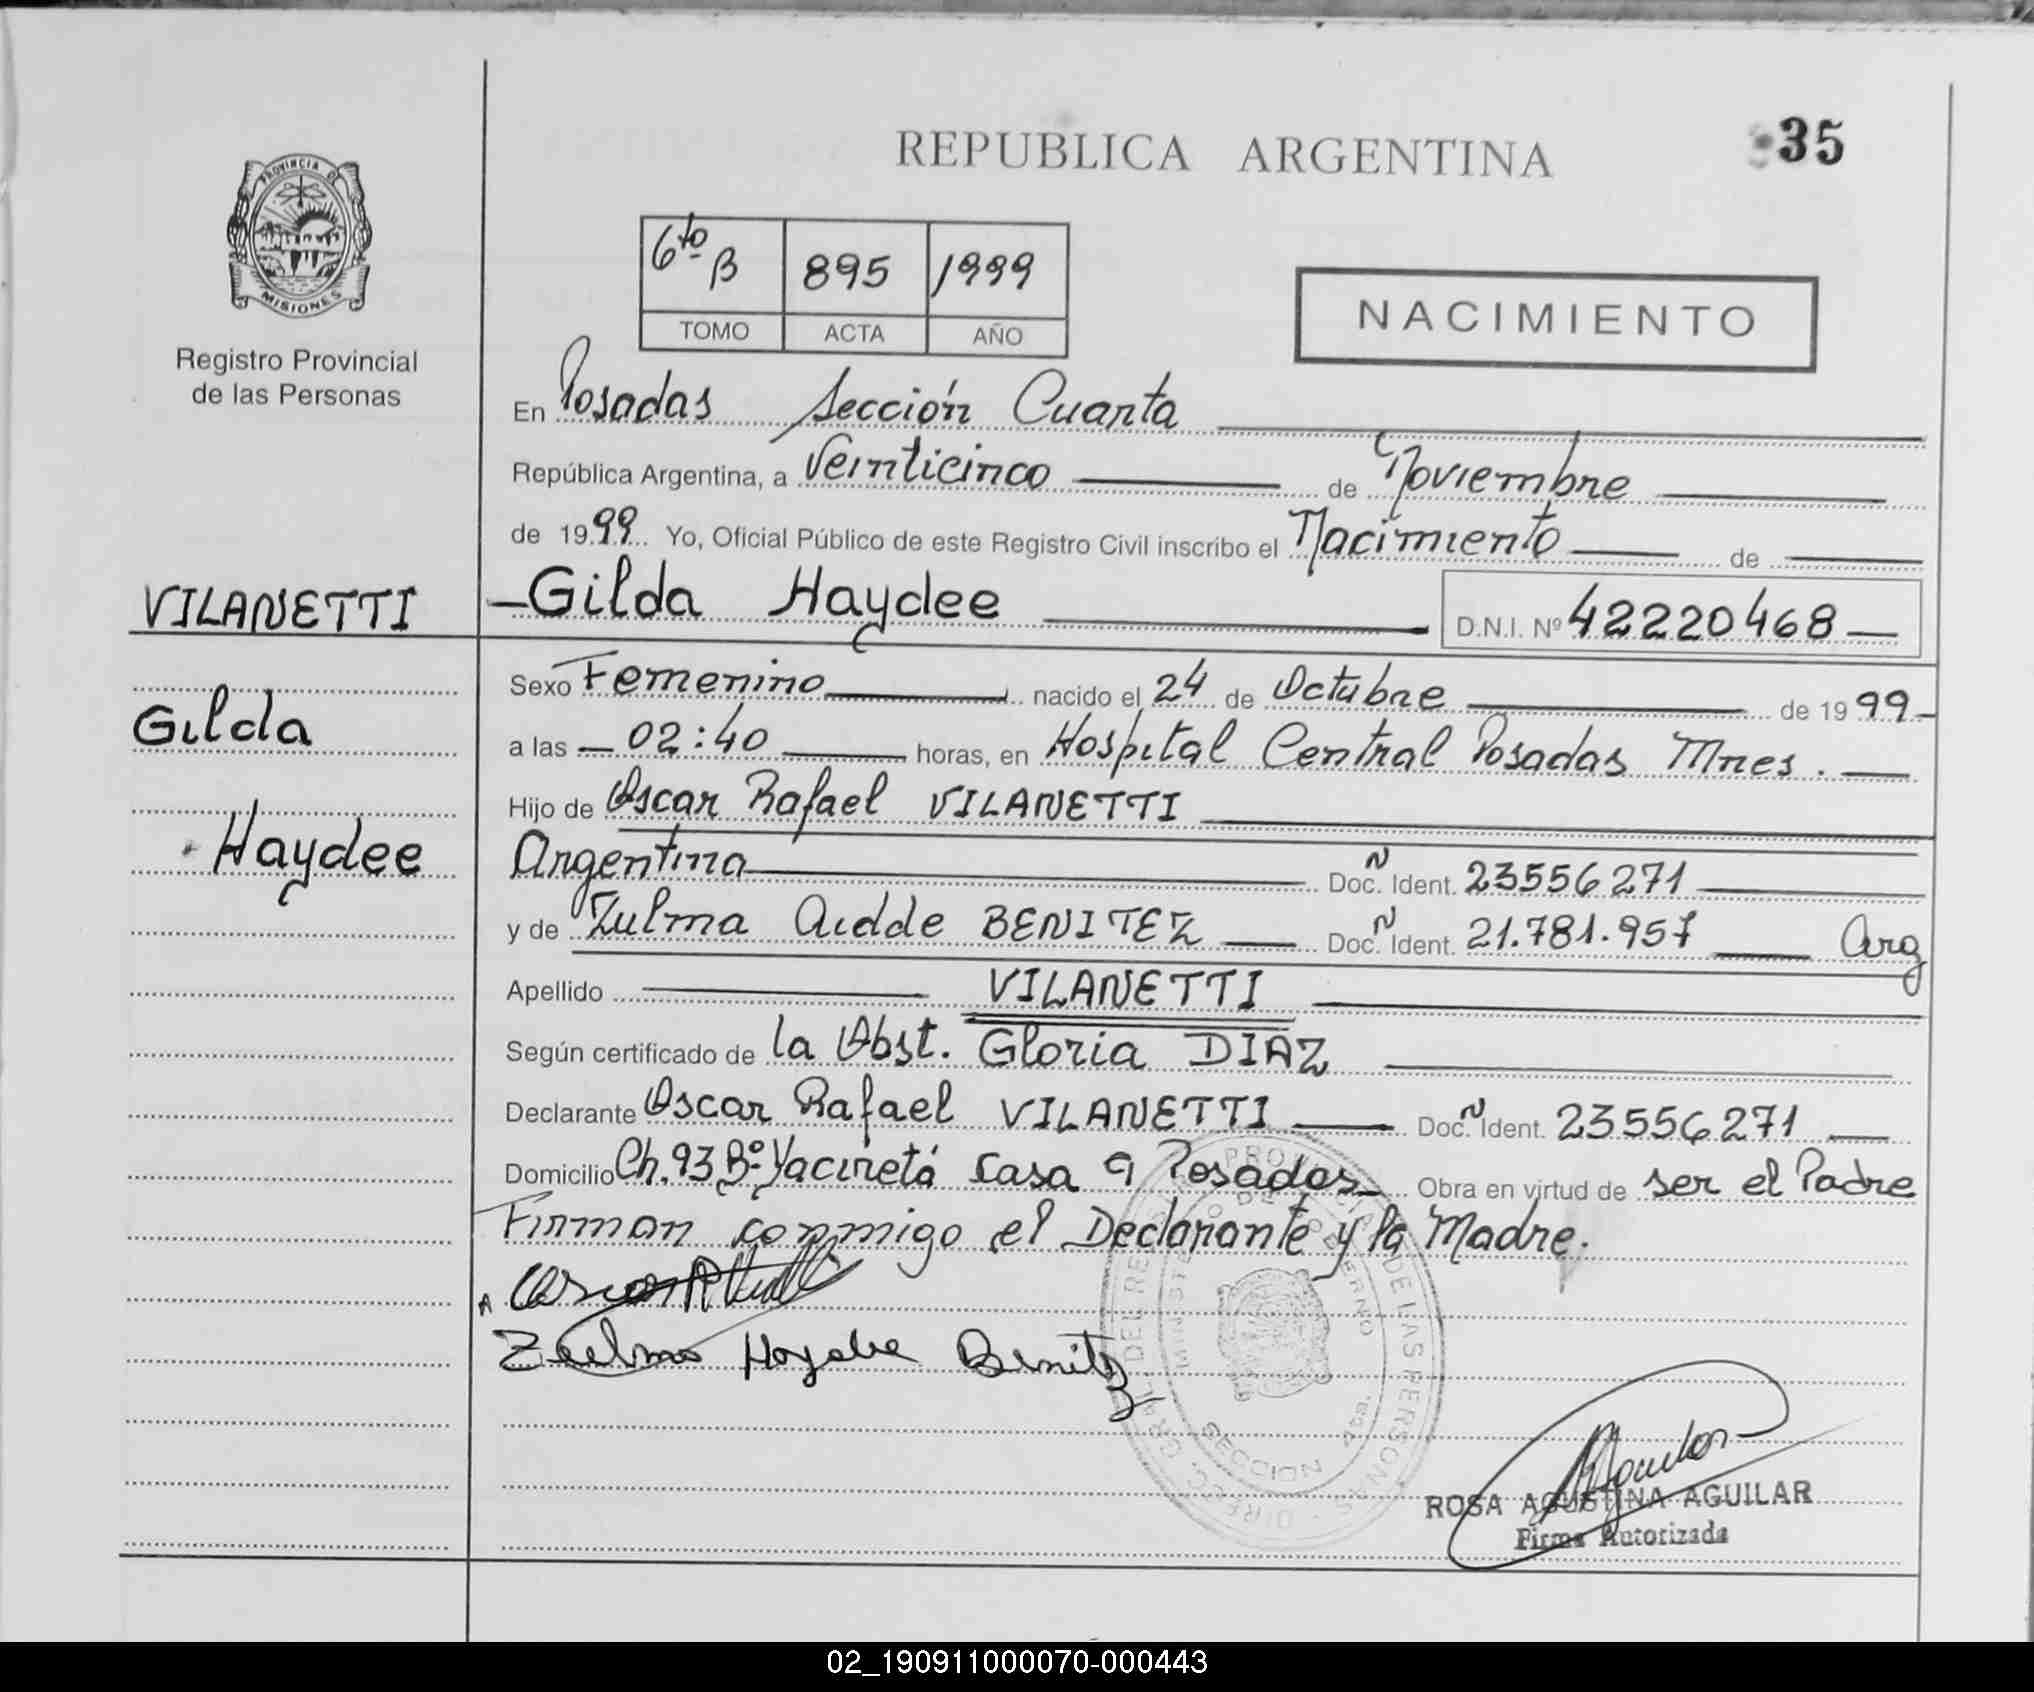 REPUBLICA ARGENTINA
35
PROVINCIA DE
MISIONES
Registro Provincial
de las Personas
6to B 895 1999
TOMO ACTA AÑO
NACIMIENTO
En Posadas Sección Cuarta
República Argentina, a Veinticinco de Noviembre
de 1999 Yo, Oficial Público de este Registro Civil inscribo el Nacimiento de
VILANETTI
Gilda Haydee
D.N.I. Nº 42220468
Gilda
Haydee
Sexo Femenino nacido el 24 de Octubre de 1999
a las 02:40 horas, en Hospital Central Posadas Mnes.
Hijo de Oscar Rafael VILANETTI
Argentina Doc. Ident. Nº 23556271
y de Zulma Aidde BENITEZ Doc. Ident. Nº 21.781.957 Arg
Apellido VILANETTI
Según certificado de la Obst. Gloria DIAZ
Declarante Oscar Rafael VILANETTI Doc. Ident. Nº 23556271
Domicilio Ch. 93 Bº Yaciretá Casa 9 Posadas Obra en virtud de ser el Padre
Firman conmigo el Declarante y la Madre.
Zulma Haydee Benitez
DIRECC. GRAL. DEL REG. PROVINCIAL DE LAS PERSONAS
MINISTERIO DE GOBIERNO
SECCION 4ta.
ROSA AGUSTINA AGUILAR
Firma Autorizada
02_190911000070-000443